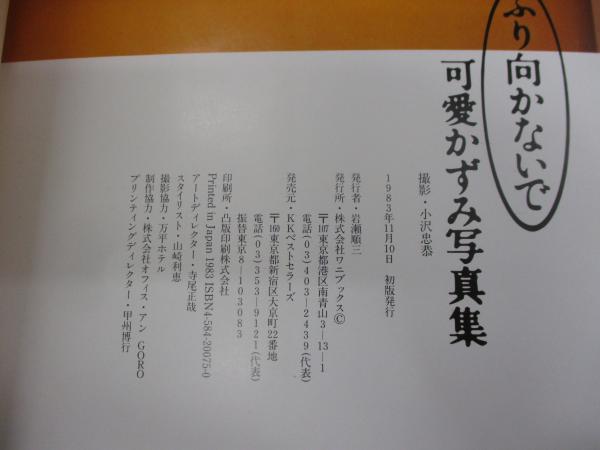 ふり向かないで
可愛かずみ写真集
撮影・小沢忠恭
1983年11月10日　初版発行
発行者・岩瀬順三
発行所・株式会社ワニブックス©
〒107東京都港区南青山3―13―1
電話(03)403―2439(代表)
発売元・KKベストセラーズ
〒160東京都新宿区大京町22番地
電話(03)353―9121(代表)
振替東京8―103083
印刷所・凸版印刷株式会社
Printed in Japan 1983 ISBN4-584-20075-0
アートディレクター・寺尾正哉
スタイリスト・山崎利恵
撮影協力・万平ホテル
制作協力・株式会社オフィス・アン GORO
プリンティングディレクター・甲州博行